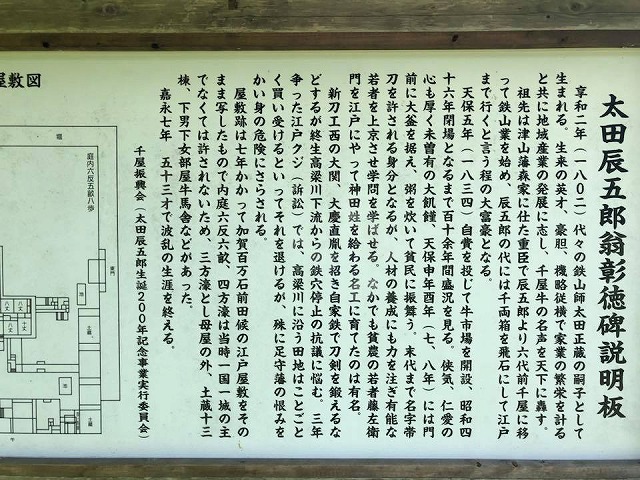 太田辰五郎翁彰徳碑説明板
享和二年(一八〇二)代々の鉄山師太田正蔵の嗣子として
生まれる。生来の英才、豪胆、機略従横で家業の繁栄を計る
と共に地域産業の発展に志し、千屋牛の名声を天下に轟す。
祖先は津山藩森家に仕た重臣で辰五郎より六代前千屋に移
って鉄山業を始め、辰五郎の代には千両箱を飛石にして江戸
まで行くと言う程の大富豪となる。
天保五年(一八三四)自費を投じて牛市場を開設、昭和四
十六年閉場となるまで百十余年間盛況を見る。侠気、仁愛の
心も厚く未曽有の大飢饉、天保申年酉年(七、八年)には門
前に大釜を据え、粥を炊いて貧民に振舞う。末代まで名字帯
刀を許される身分となるが、人材の養成にも力を注ぎ有能な
若者を上京させ学問を学ばせる。なかでも貧農の若者藤左衛
門を江戸にやって神田姓を給わる名工に育てたのは有名。
新刀工西の大関、大慶直胤を招き自家鉄で刀剣を鍛えるな
どするが終生高梁川下流からの鉄穴停止の抗議に悩む。三年
争った江戸クジ(訴訟)では、高梁川に沿う田地はことごと
く買い受けるといってそれを退けるが、殊に足守藩の恨みを
かい身の危険にさらされる。
屋敷跡は七年かかって加賀百万石前田候の江戸屋敷をその
まま写したもので内庭六反六畝、四方濠は当時一国一城の主
でなくては許されないため、三方濠とし母屋の外、土蔵十三
棟、下男下女部屋牛馬舎などがあった。
嘉永七年 五十三才で波乱の生涯を終える。
千屋振興会(太田辰五郎生誕200年記念事業実行委員会)
屋敷図
堀
庭内六反五畝八歩
土蔵
土蔵
池
池
八丈
八丈
十丈